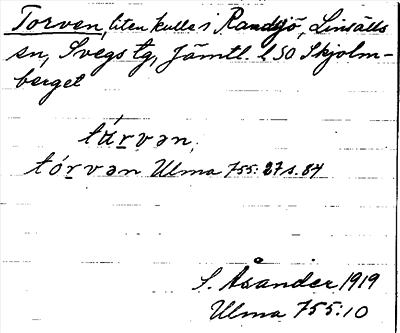 Torven, liten kulle i Randsjö, Linsälls
sn, Svegs tg, Jämtl. l SO Skjolm-
berget
túrvən,
tórvən Ulma 755:27 s. 84
S. Åsander 1919
Ulma 755:10